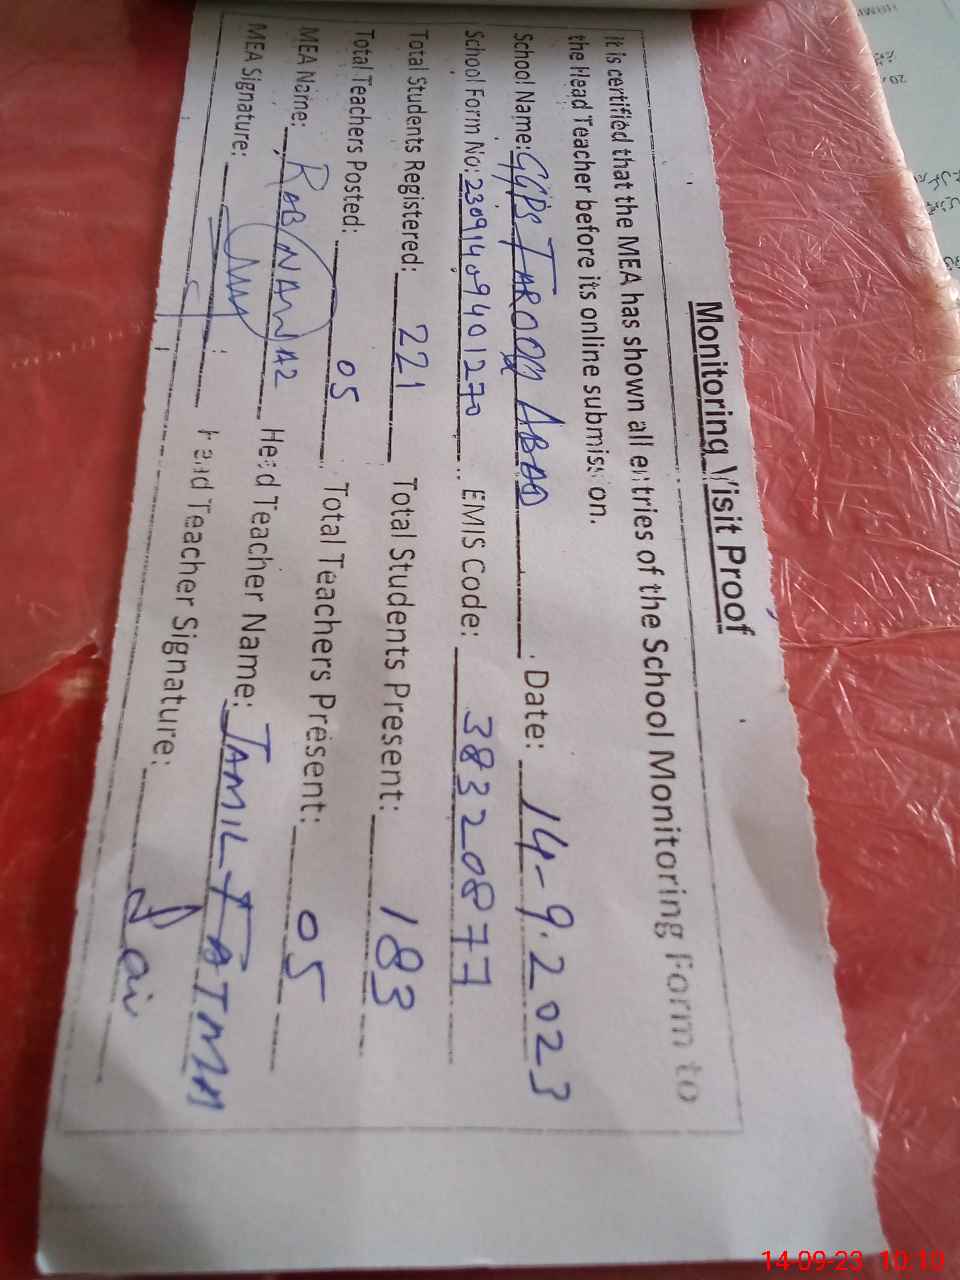 Monitoring Visit Proof
It is certified that the MEA has shown all entries of the School Monitoring Form to
the Head Teacher before its online submission.
School Name: GGPS TAROOM ABAD Date: 14-9.2023
School Form No: 23091409401270 EMIS Code: 38320877
Total Students Registered: 221 Total Students Present: 183
Total Teachers Posted: 05 Total Teachers Present: 05
MEA Name: RAB NAWAZ Head Teacher Name: JAMIL FATMA
MEA Signature: Head Teacher Signature:
14-09-23 10:10